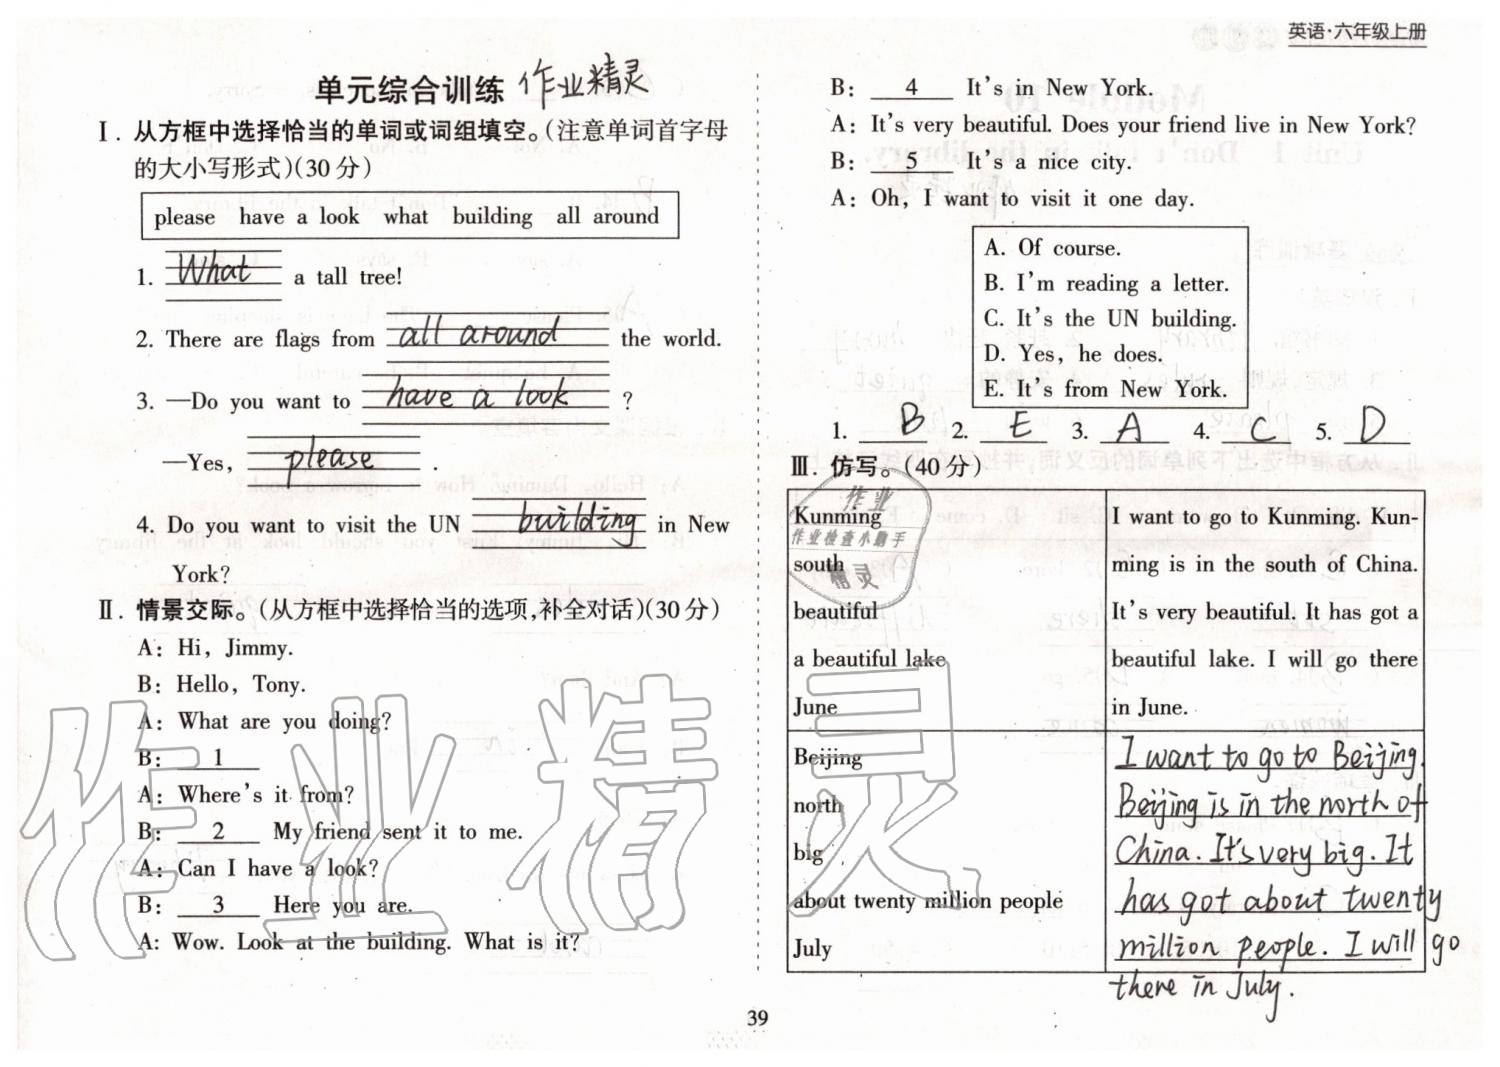 英语·六年级上册
单元综合训练 作业精灵
Ⅰ. 从方框中选择恰当的单词或词组填空。(注意单词首字母
的大小写形式)(30分)
please have a look what building all around
1. What a tall tree!
2. There are flags from all around the world.
3. —Do you want to have a look ?
—Yes, please .
4. Do you want to visit the UN building in New
York?
Ⅱ. 情景交际。(从方框中选择恰当的选项,补全对话)(30分)
A: Hi, Jimmy.
B: Hello, Tony.
A: What are you doing?
B: 1
A: Where's it from?
B: 2 My friend sent it to me.
A: Can I have a look?
B: 3 Here you are.
A: Wow. Look at the building. What is it?
B: 4 It's in New York.
A: It's very beautiful. Does your friend live in New York?
B: 5 It's a nice city.
A: Oh, I want to visit it one day.
A. Of course.
B. I'm reading a letter.
C. It's the UN building.
D. Yes, he does.
E. It's from New York.
1. B 2. E 3. A 4. C 5. D
Ⅲ. 仿写。(40分)
作业
作业检查小助手
精灵
Kunming
south
beautiful
a beautiful lake
June
I want to go to Kunming. Kun-
ming is in the south of China.
It's very beautiful. It has got a
beautiful lake. I will go there
in June.
Beijing
north
big
about twenty million people
July
I want to go to Beijing.
Beijing is in the north of
China. It's very big. It
has got about twenty
million people. I will go
there in July.
作业精灵
39